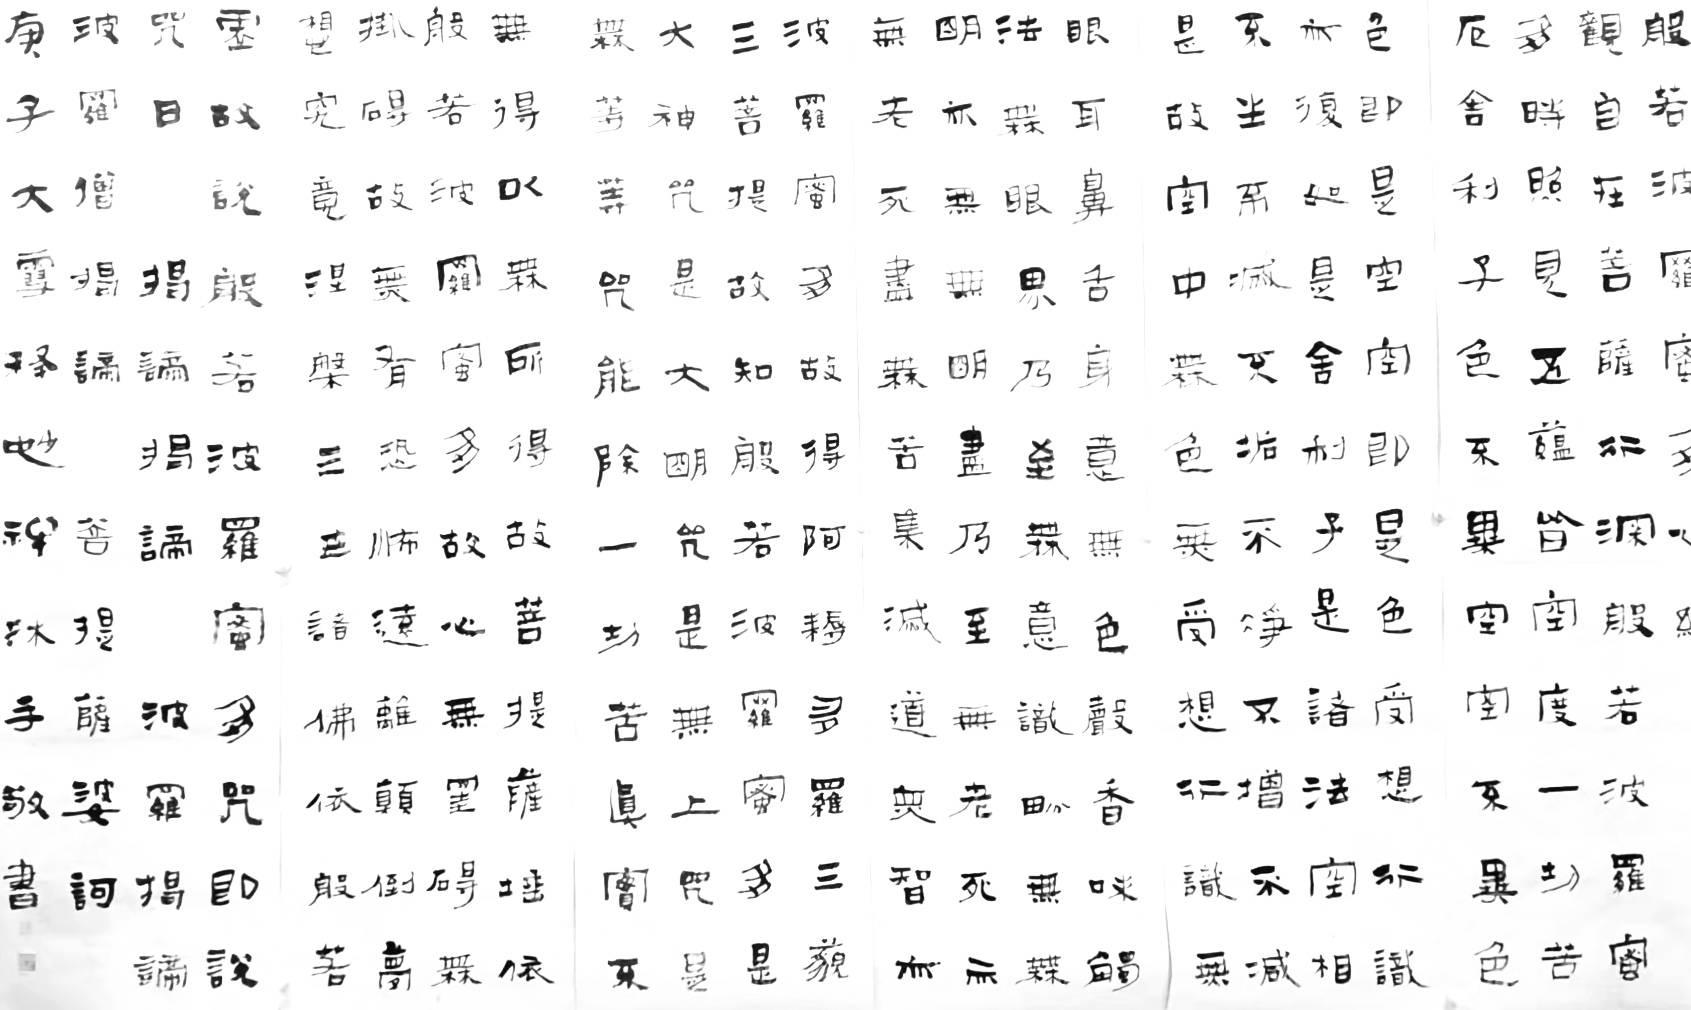 般若波羅蜜多心經
觀自在菩薩行深般若波羅蜜
多時照見五蘊皆空度一切苦
厄舍利子色不異空空不異色
色即是空空即是色受想行識
亦復如是舍利子是諸法空相
不生不滅不垢不淨不增不減
是故空中無色無受想行識無
眼耳鼻舌身意無色聲香味觸
法無眼界乃至無意識界無無
明亦無無明盡乃至無老死亦
無老死盡無苦集滅道無智亦
波羅蜜多故得阿耨多羅三藐
三菩提故知般若波羅蜜多是
大神咒是大明咒是無上咒是
無等等咒能除一切苦眞實不
無得以無所得故菩提薩埵依
般若波羅蜜多故心無罣碍無
掛碍故無有恐怖遠離顛倒夢
想究竟涅槃三世諸佛依般若
虛故說般若波羅蜜多咒即說
咒曰 揭諦揭諦 波羅揭諦
波羅僧揭諦 菩提薩婆訶
庚子大雪釋妙禪沐手敬書